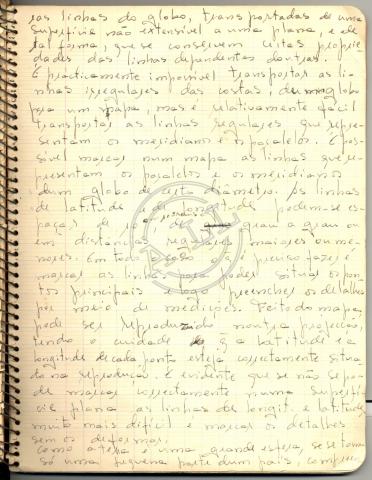 as linhas do globo, transportadas de uma
superficie não extensivel a uma plana, e de
tal forma, que se conservem certas proprie-
dades das linhas dependentes doutras.
É practicamente impossivel transportar as li-
nhas irregulares das costas, dum globo
para um mapa, mas é relativamente fácil
transportar as linhas regulares que repre-
sentam os meridianos e paralelos. É pos-
sivel marcar num mapa as linhas que re-
presentam os paralelos e os meridianos
dum globo de certo diâmetro. As linhas
de latitude e de longitude podem-se es-
paçar de grau a grau ou
em distâncias regulares maiores ou me-
nores. Em todo caso é preciso fazer e
marcar as linhas para poder situar os pon-
tos principais e logo preencher os detalhes
por meio de medições. Feito do mapa,
pode ser reproduzido noutra projecção,
tendo o cuidado de q a latitude e a
longitude de cada ponto esteja correctamente situa-
da na reprodução. É evidente que se não se po-
de marcar correctamente numa superfi-
cie plana as linhas de longit. e latitude
muito mais dificil é marcar os detalhes
sem os deformar.
Como a terra é uma grande esfera, se se toma
só uma pequena parte dum país, compreen-